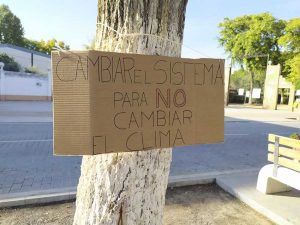 CAMBIAR EL SISTEMA
PARA NO
CAMBIAR
EL CLIMA